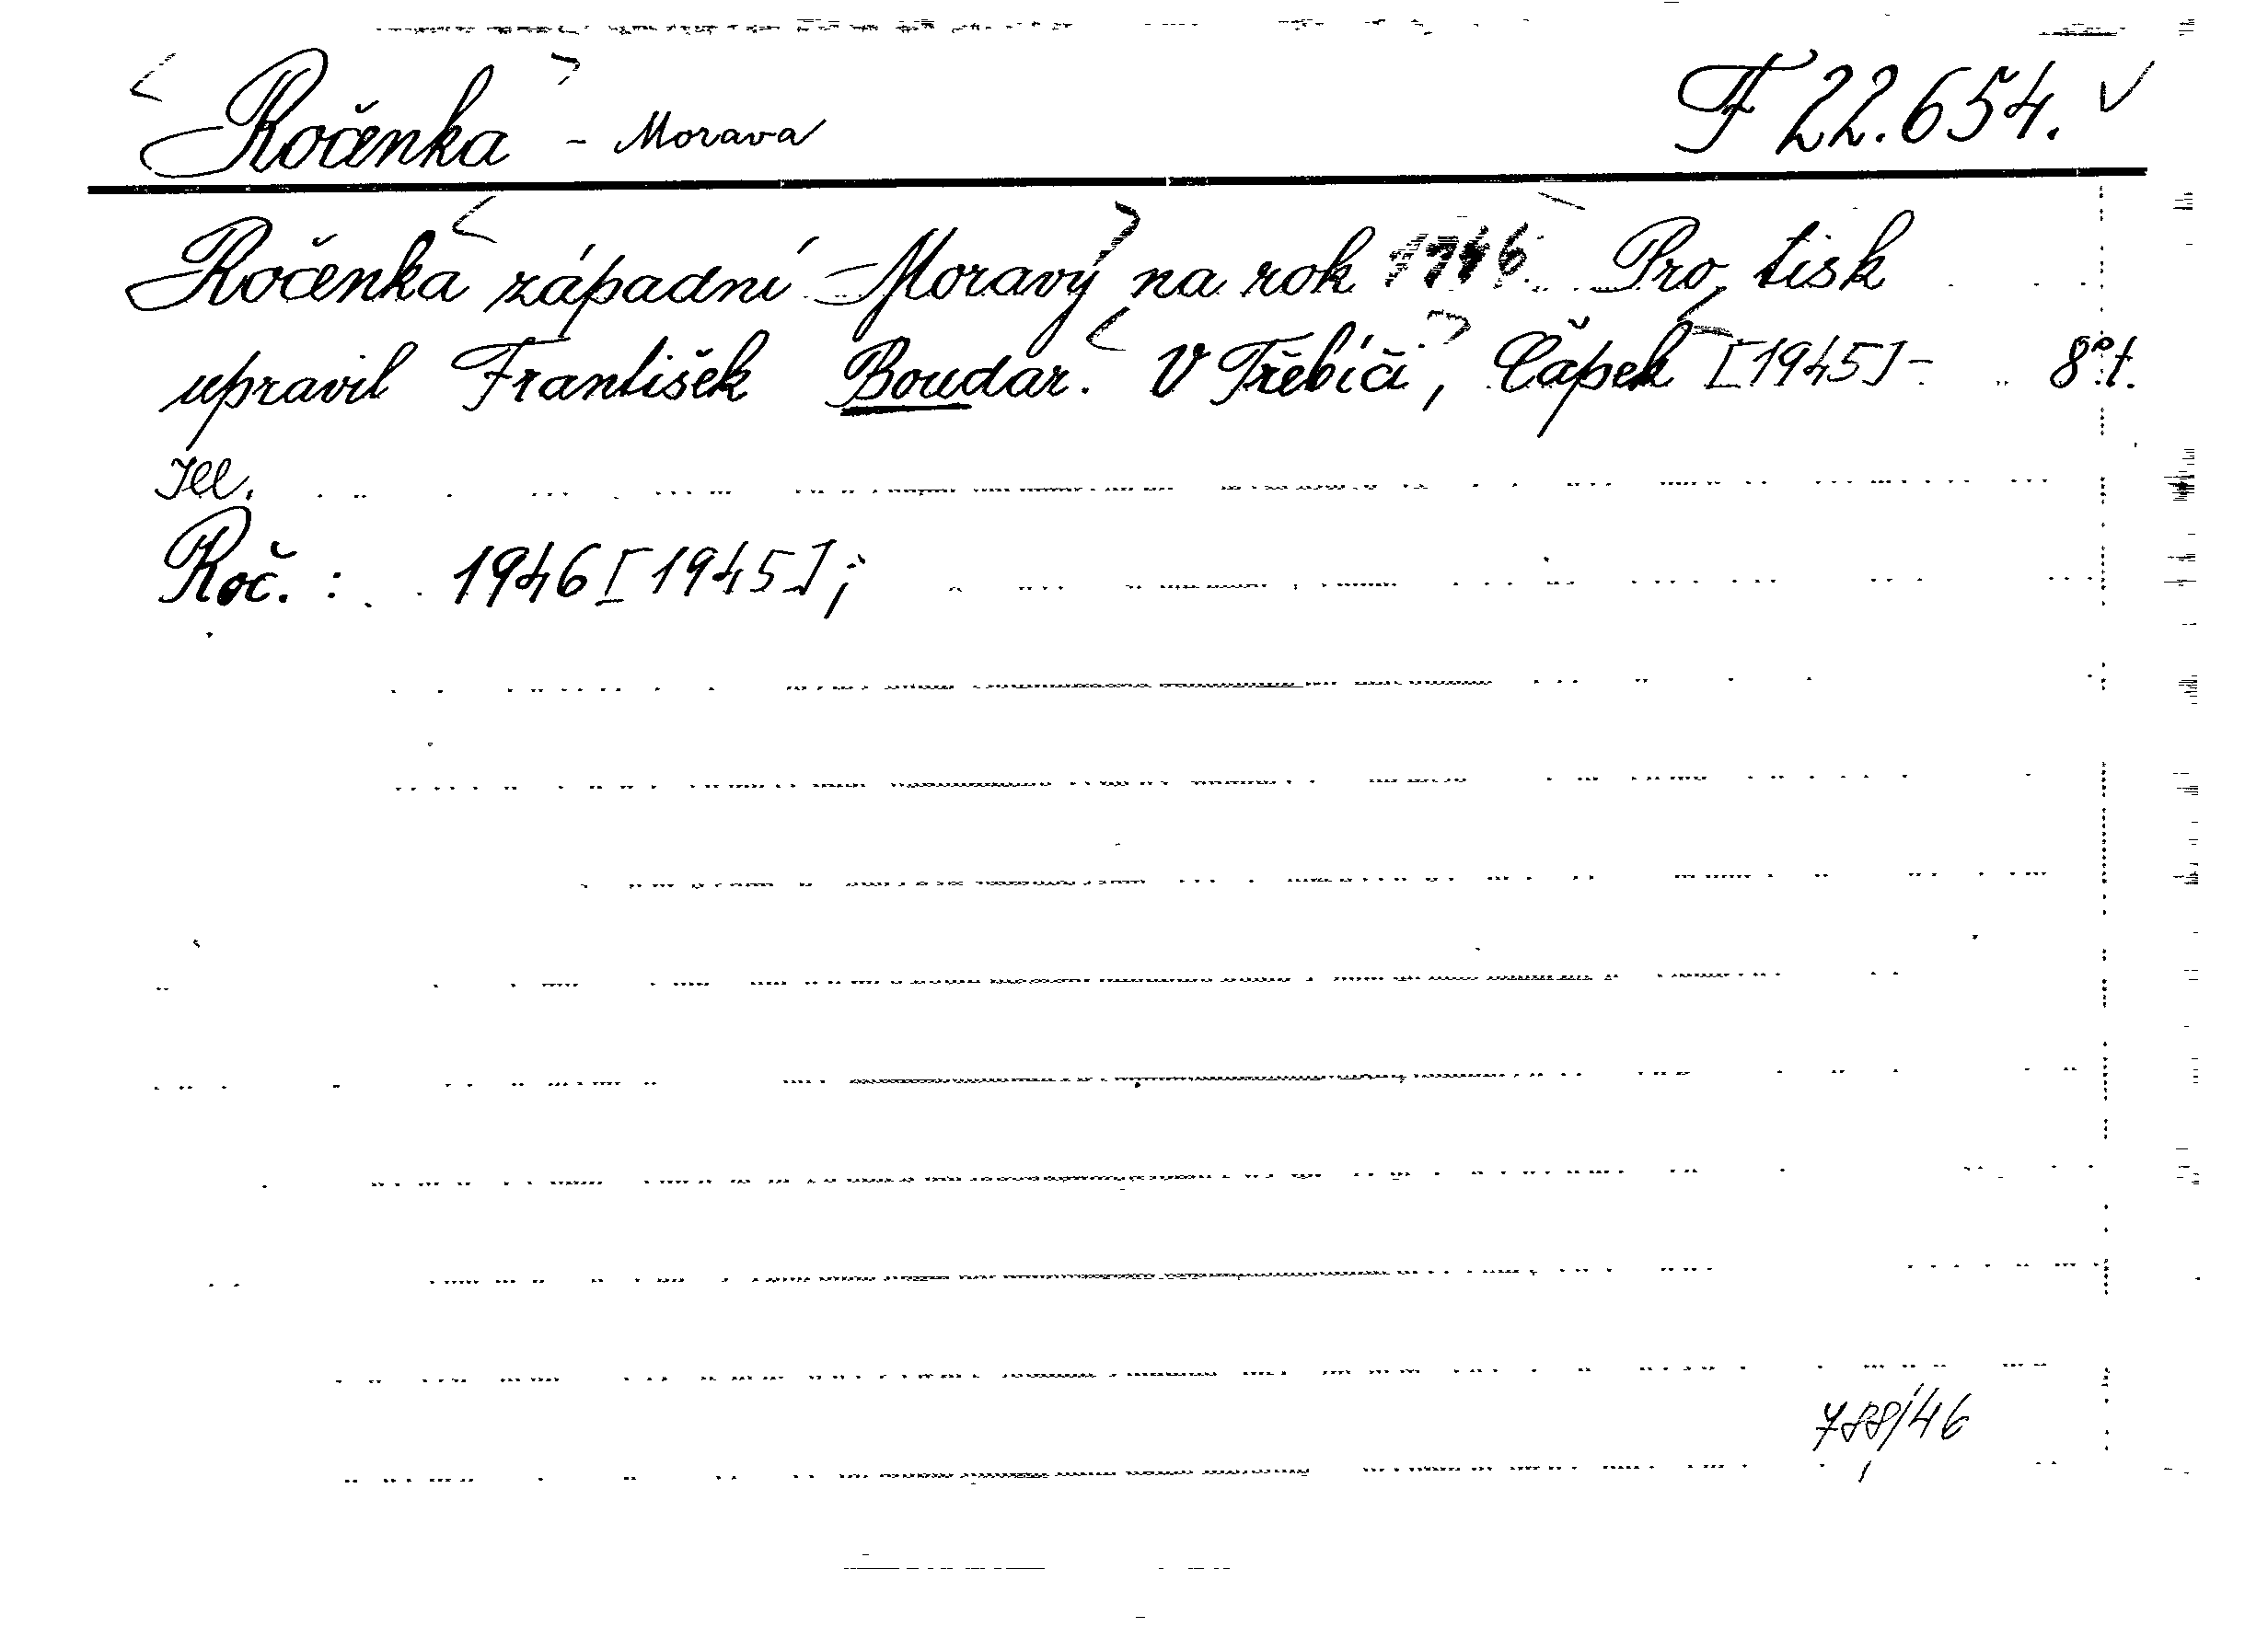 <Ročenka> - Morava F 22.654. ✓
Ročenka <západní Moravy> na rok 1946. Pro tisk
upravil František Boudar. <V Třebíči>, Čápek [1945] - 8° t.
Ill.
Roč. : 1946 [1945];
788/46